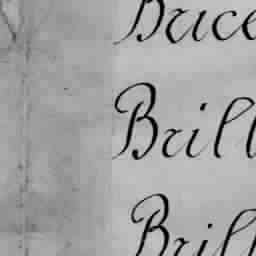 Brice
Brill
Brill